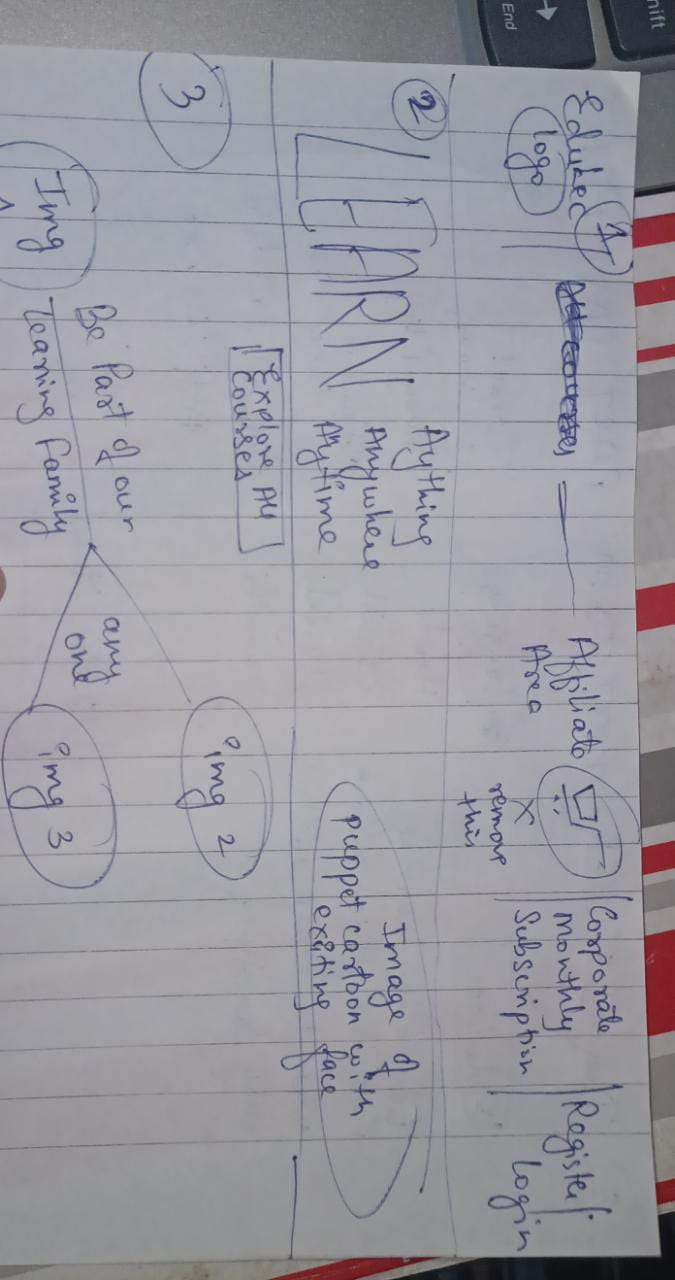 hift
→
End
1
Edukec
logo
All courses
Affiliate
Area
x
remove
this
Corporate
Monthly
Subscription
Register/
Login
2
LEARN
Aything
Anywhere
Anytime
Image of
puppet cartoon with
exiting face
Explore All
Courses
3
img 2
Be Part of our
Learning Family
any
one
Img
img 3